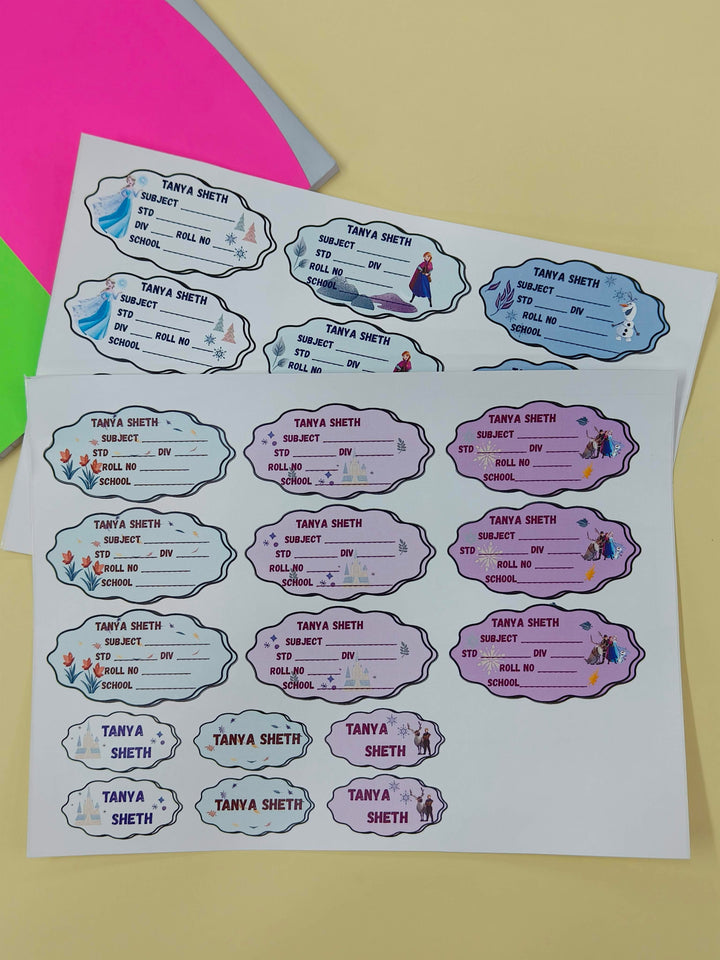 TANYA SHETH
SUBJECT
STD
DIV ROLL NO
SCHOOL
TANYA SHETH
SUBJECT
STD DIV
ROLL NO
SCHOOL
TANYA SHETH
SUBJECT
STD DIV
ROLL NO
SCHOOL
TANYA SHETH
SUBJECT
STD
DIV ROLL NO
SCHOOL
TANYA SHETH
SUBJECT
STD DIV
ROLL NO
TANYA SHETH
SUBJECT
STD DIV
ROLL NO
SCHOOL
TANYA SHETH
SUBJECT
STD DIV
ROLL NO
SCHOOL
TANYA SHETH
SUBJECT
STD DIV
ROLL NO
SCHOOL
TANYA SHETH
SUBJECT
STD DIV
ROLL NO
SCHOOL
TANYA SHETH
SUBJECT
STD DIV
ROLL NO
SCHOOL
TANYA SHETH
SUBJECT
STD DIV
ROLL NO
SCHOOL
TANYA SHETH
SUBJECT
STD DIV
ROLL NO
SCHOOL
TANYA SHETH
SUBJECT
STD DIV
ROLL NO
SCHOOL
TANYA SHETH
SUBJECT
STD DIV
ROLL NO
SCHOOL
TANYA
SHETH
TANYA SHETH
TANYA
SHETH
TANYA
SHETH
TANYA SHETH
TANYA
SHETH